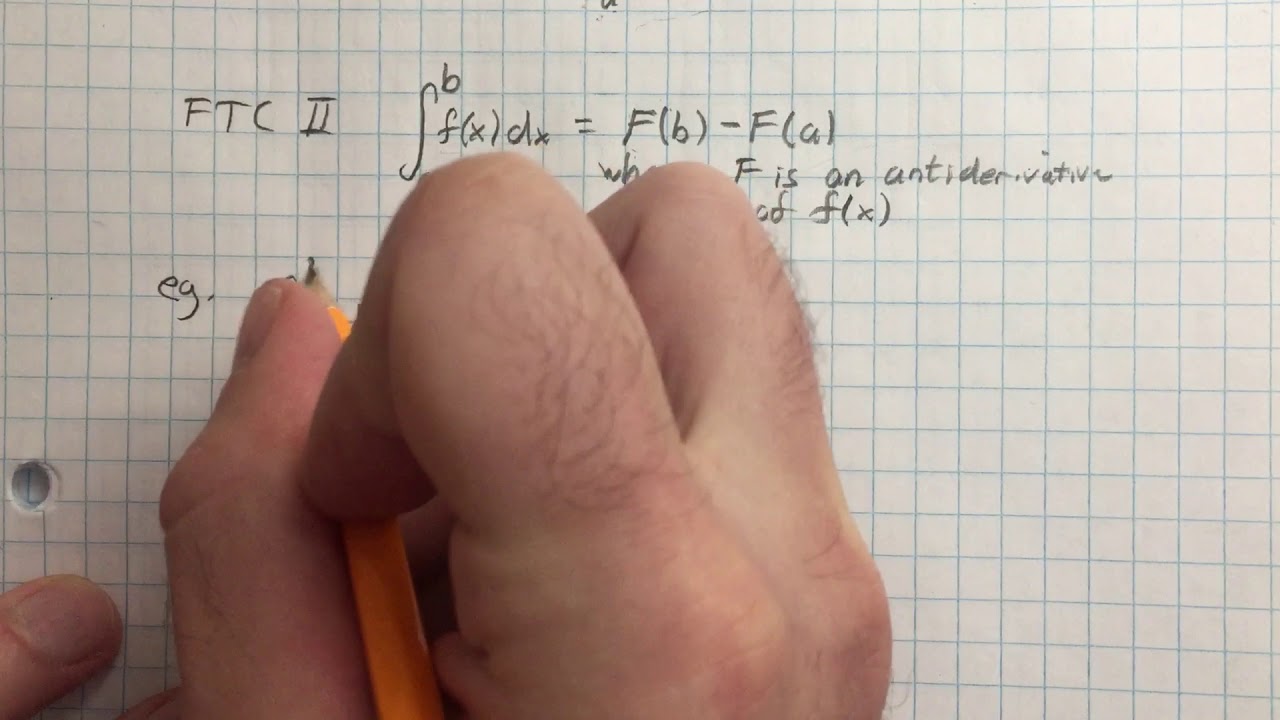 FTC II ∫ b f(x) dx = F(b) - F(a)
F is an antiderivative
of f(x)
eg.